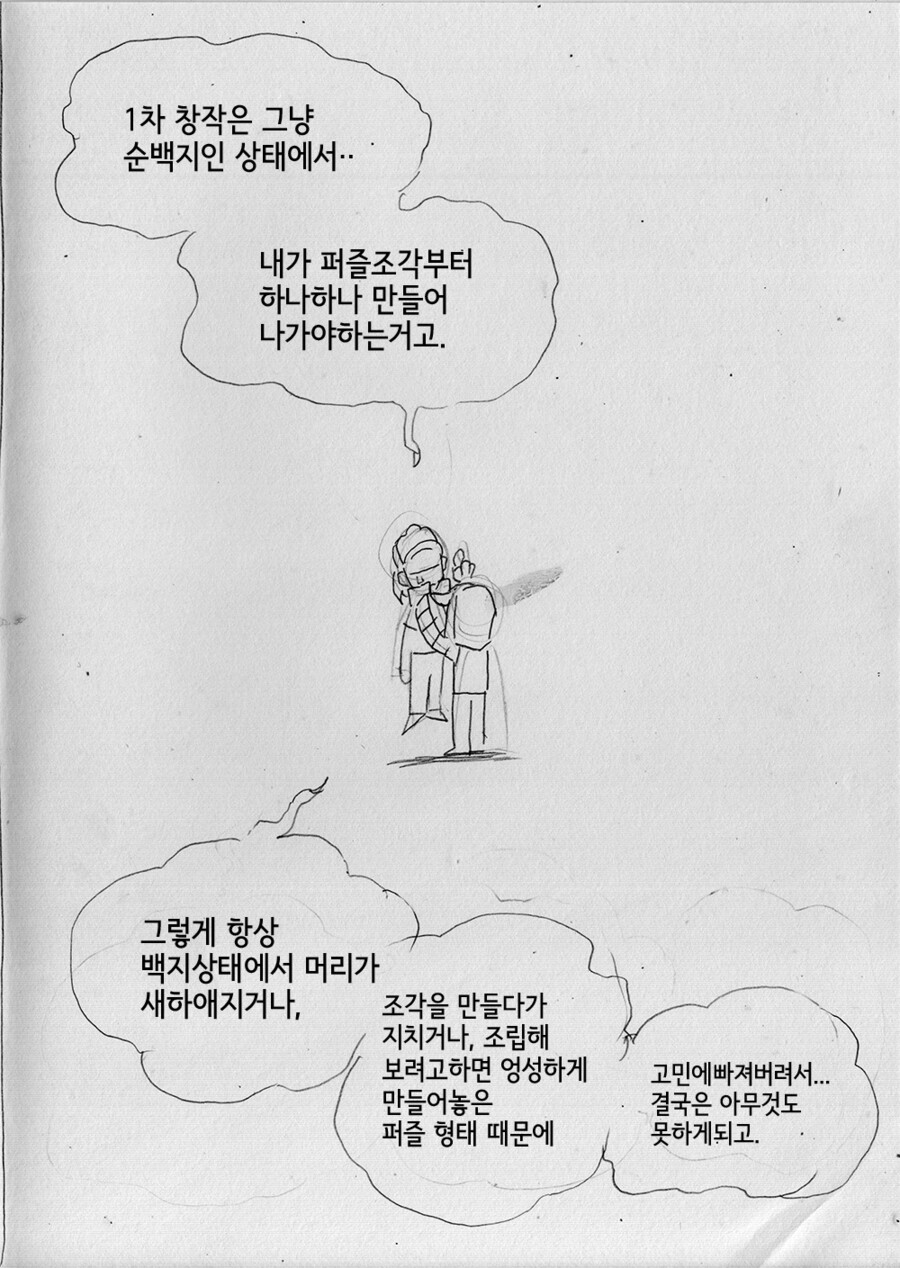 1차 창작은 그냥
순백지인 상태에서··
내가 퍼즐조각부터
하나하나 만들어
나가야하는거고.
그렇게 항상
백지상태에서 머리가
새하애지거나,
조각을 만들다가
지치거나, 조립해
보려고하면 엉성하게
만들어놓은
퍼즐 형태 때문에
고민에빠져버려서...
결국은 아무것도
못하게되고.